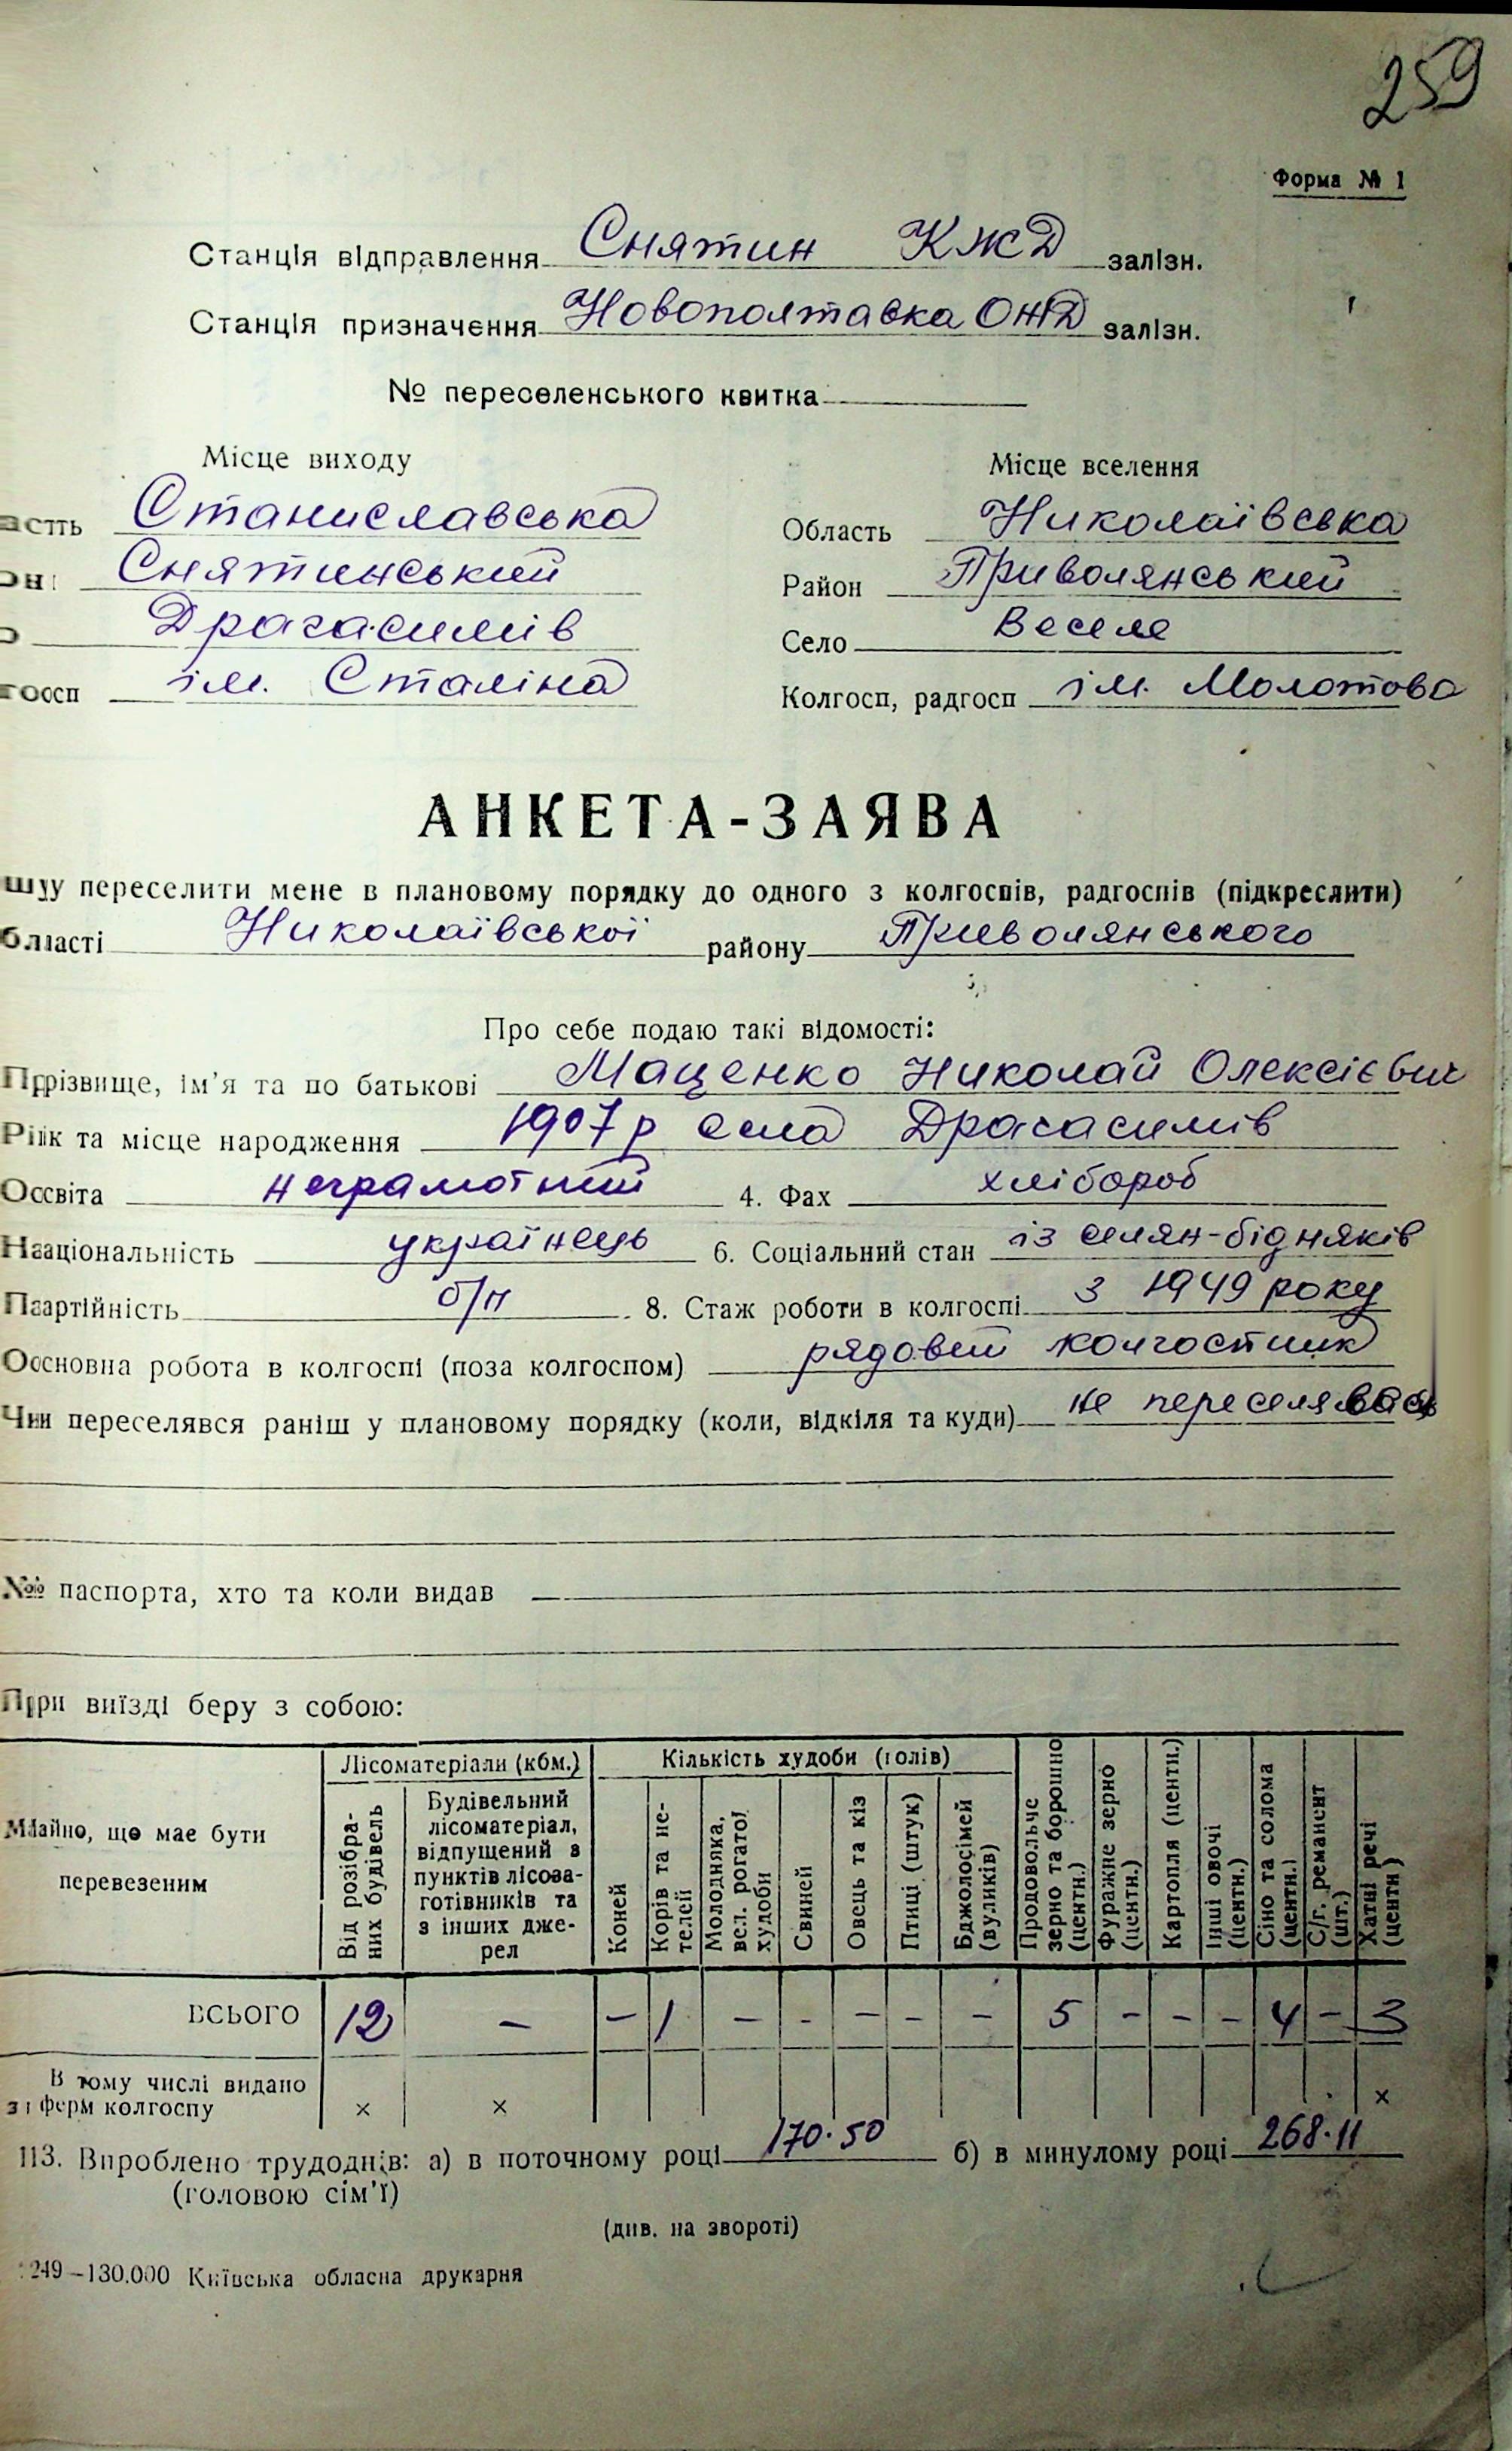 259
Форма № 1
Станція відправлення Снятин КЖД залізн.
Станція призначення Новополтавка ОЖД залізн.
№ переселенського квитка
Місце виходу Місце вселення
Станиславська Область Николаївська
Снятинський Район Приволянський
Драгасимів Село Веселе
ім. Сталіна Колгосп, радгосп ім. Молотова
АНКЕТА-ЗАЯВА
шу переселити мене в плановому порядку до одного з колгоспів, радгоспів (підкреслити)
бласті Николаївської району Приволянського
Про себе подаю такі відомості:
Прізвище, ім'я та по батькові Маценко Николай Олексієвич
Рік та місце народження 1907 р село Драгасимів
Освіта неграмотний 4. Фах хлібороб
Національність українець 6. Соціальний стан із селян-бідняків
Партійність б/п 8. Стаж роботи в колгоспі з 1949 року
Основна робота в колгоспі (поза колгоспом) рядовий колгоспник
Чи переселявся раніш у плановому порядку (коли, відкіля та куди) не переселявсь
№ паспорта, хто та коли видав
При виїзді беру з собою:
Майно, що має бути перевезеним
Лісоматеріали (кбм.) Кількість худоби (голів)
Від розібраних будівель
Будівельний лісоматеріал, відпущений з пунктів лісозаготівників та з інших джерел
Коней
Корів та нетелей
Молодняка, вел. рогатої худоби
Свиней
Овець та кіз
Птиці (штук)
Бджолосімей (вуликів)
Продовольче зерно та борошно (центн.)
Фуражне зерно (центн.)
Картопля (центн.)
Інші овочі (центн.)
Сіно та солома (центн.)
С/г. реманент (шт.)
Хатні речі (центн)
ВСЬОГО 12 – – 1 – - – – – 5 – – – 4 – 3
В тому числі видано
з ферм колгоспу × × ×
13. Вироблено трудоднів: а) в поточному році 170.50 б) в минулому році 268.11
(головою сім'ї)
(див. на звороті)
249–130.000 Київська обласна друкарня